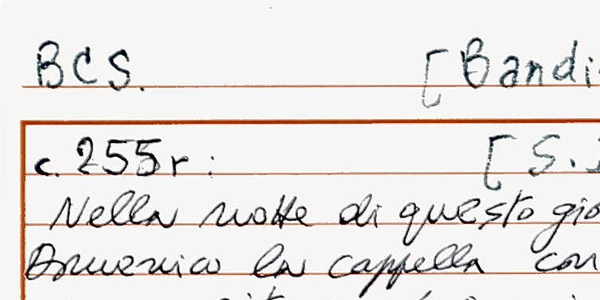 BCS. [Bandi
c. 255r: [S.
Nella notte di questo gio
Domenico la cappella con